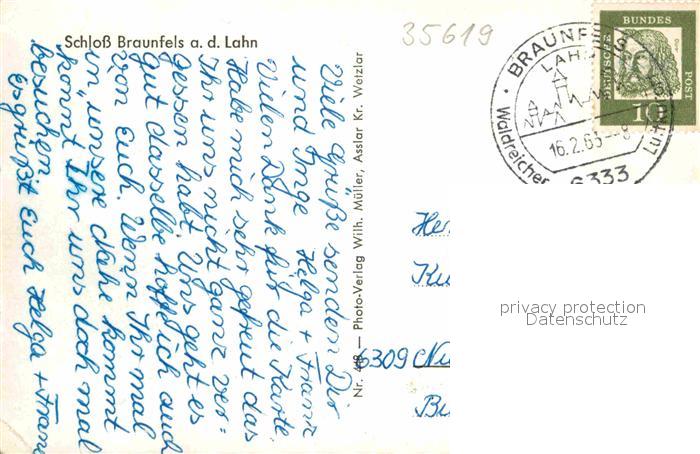 Schloß Braunfels a. d. Lahn
35619
BRAUNFELS
LAHN
16.2.63 – 8
Waldreicher
Luft
6333
DEUTSCHE BUNDESPOST
10
Viele Grüße senden Dir
und Inge Helga + Franz
Vielen Dank für die Karte.
Habe mich sehr gefreut das
Ihr uns nicht ganz ver=
gessen habt. Uns geht es
gut dasselbe hoffe ich auch
von Euch. Wenn Ihr mal
in unsere Nähe kommt
kommt Ihr uns doch mal
besuchen.
Es grüßt Euch Helga + Franz
Nr. 418 — Photo-Verlag Wilh. Müller, Asslar Kr. Wetzlar
Her
Ku
6309
Bu
privacy protection
Datenschutz